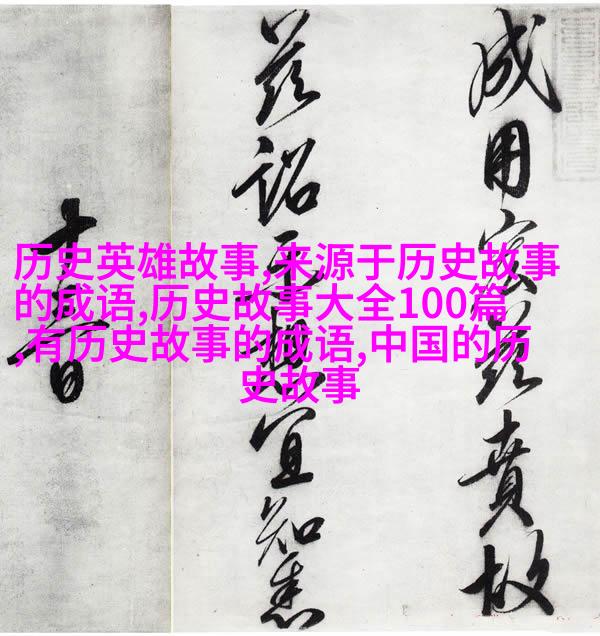 历史英雄故事,来源于历史故事
的成语,历史故事大全100篇
,有历史故事的成语,中国的历
史故事
成用宏茲賁故
茲詔示想宜知悉
十日